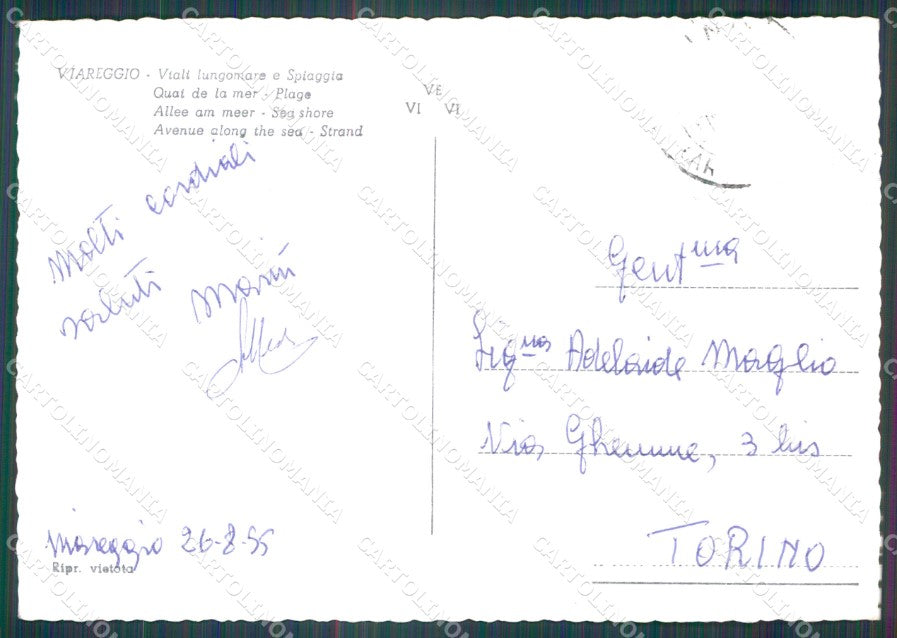 VIAREGGIO - Viali lungomare e Spiaggia
Quai de la mer - Plage
Allee am meer - Seg shore
Avenue along the sea - Strand
VE
VI VI
Molti cordiali
saluti
Gent.ma
Sig.na Adelaide Maglio
Via Ghemme, 3 bis
TORINO
Viareggio 26-8-55
Ripr. vietata
CARTOLINOMANIA